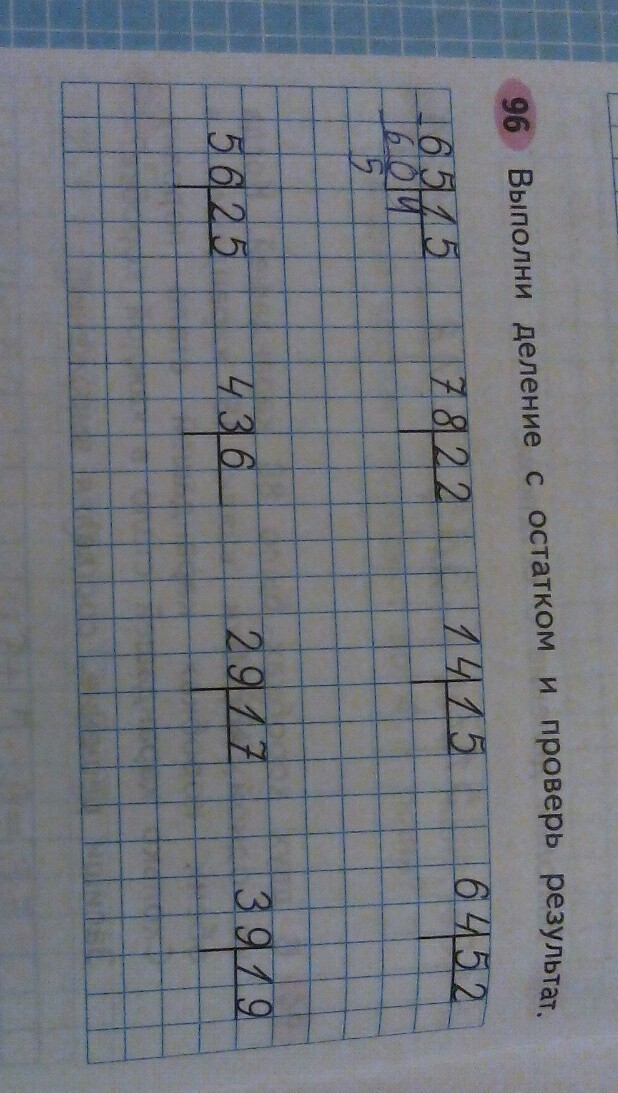 96 Выполни деление с остатком и проверь результат.
65 15 78 22 14 15 64 52
60 4
5
56 25 43 6 29 17 39 19